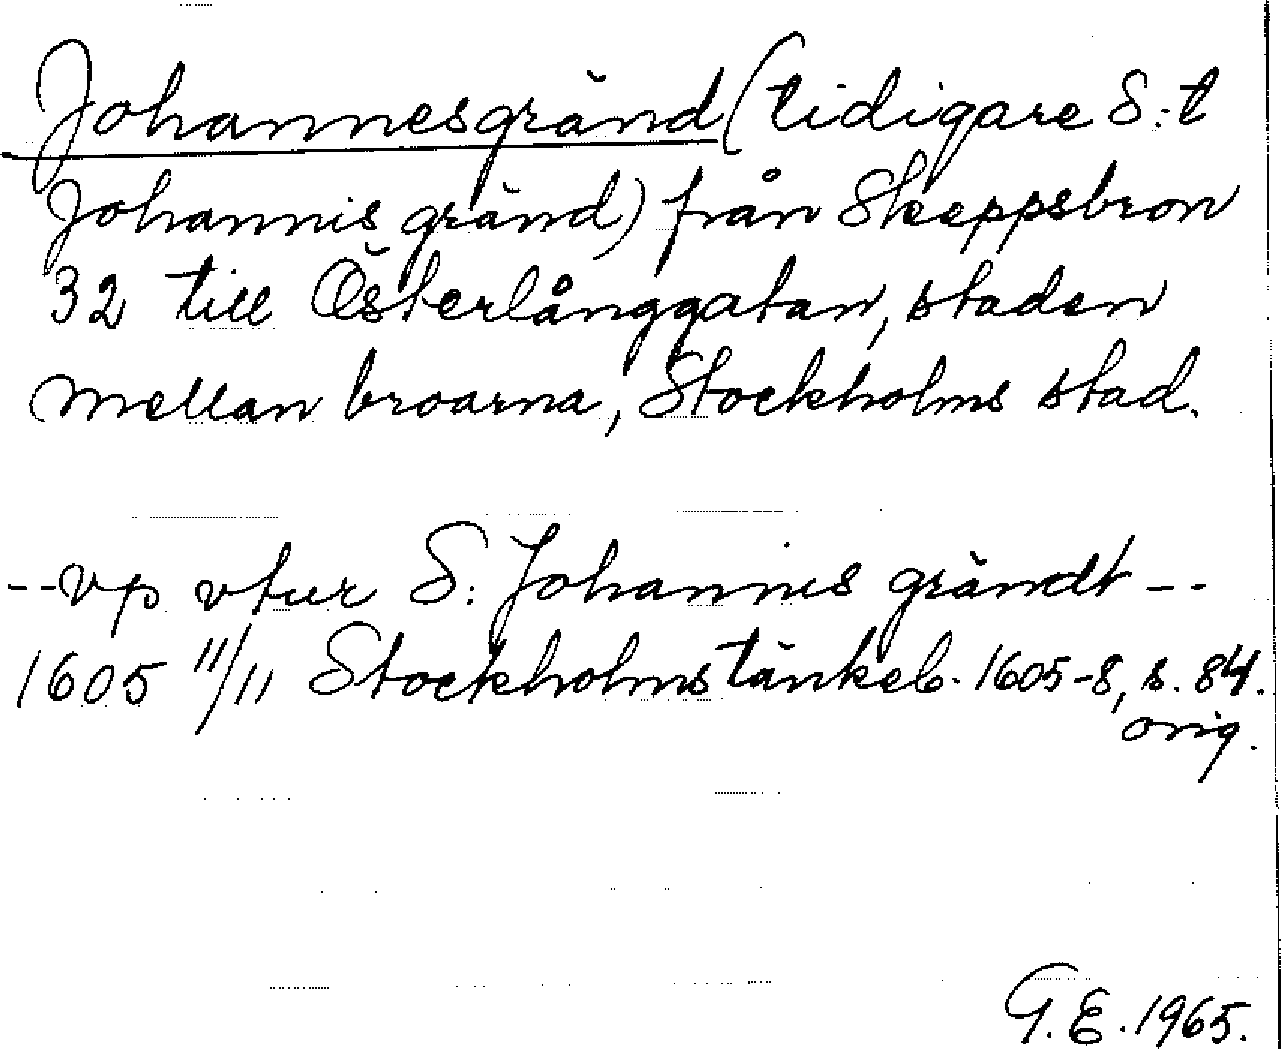 Johannesgränd (tidigare S:t
Johannis gränd) från Skeppsbron
32 till Österlånggatan, staden
mellan broarna, Stockholms stad.
--vp vtur S: Johannis grändt--
1605 11/11 Stockholms tänkeb. 1605-8, s. 84.
orig.
G.E. 1965.